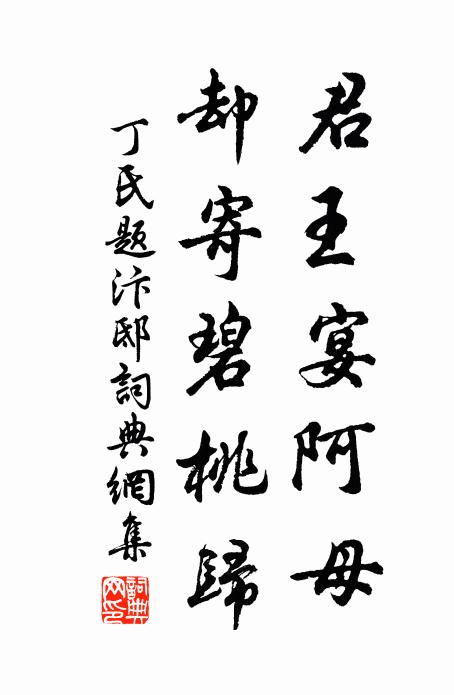 君王宴阿母
却寄碧桃歸
丁氏題汴邸詞典網集
詞典網印